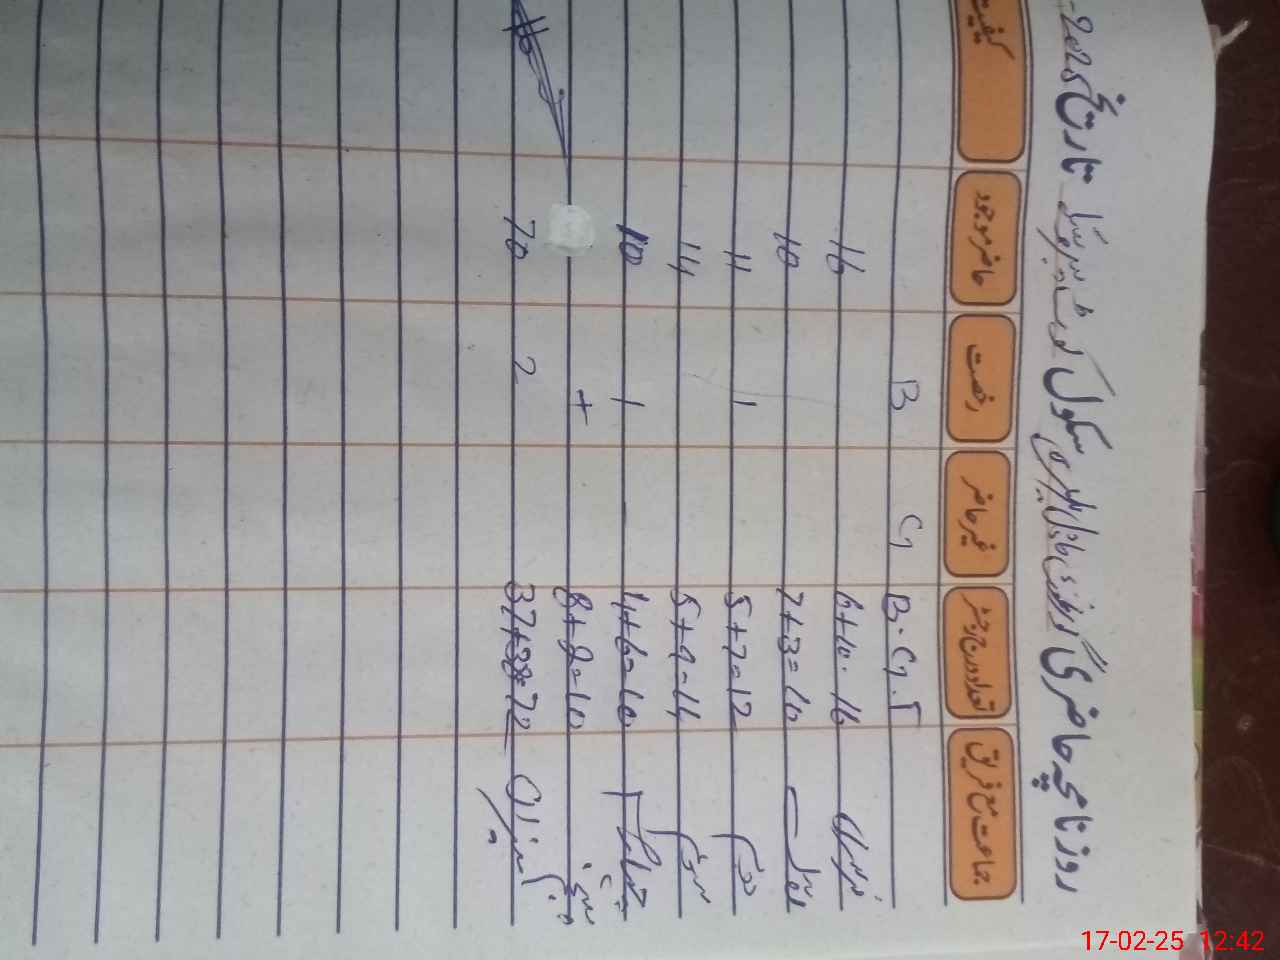 روزنامچہ حاضری گورنمنٹ پرائمری سکول تاریخ 2025-
جماعت مع فریق تعداد درج رجسٹر غیر حاضر رخصت حاضر موجود کیفیت
B.G.T G B
نرسری 6+10=16 16
اول 7+3=10 10
دوم 5+7=12 1 11
سوم 5+9=14 14
چہارم 4+6=10 1 10
پنجم 8+2=10 +
میزان 37+38=72 2 70
17-02-25 12:42